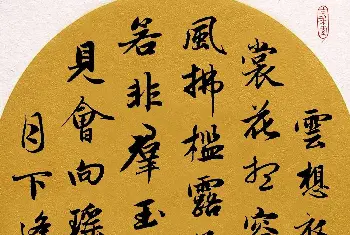 雲想
裳花想容
風拂檻露
若非羣玉
見會向瑶
月下逢